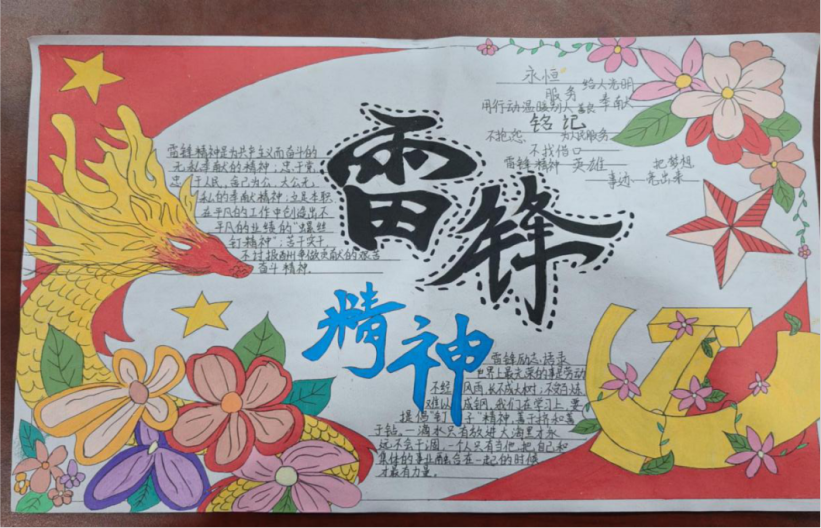 雷锋
精神
雷锋精神是为共产主义而奋斗的
无私奉献的精神；忠于党，
忠于人民，舍己为公、大公无
私的奉献精神；立足本职，
在平凡的工作中创造出不
平凡的业绩的"螺丝
钉精神"，苦干实干，
不计报酬，争做贡献的艰苦
奋斗精神。
永恒
服务
给人光明
用行动温暖别人
铭记
不抱怨
为人民服务
不找借口
雷锋精神
英雄
把梦想
雷锋励志语录
世界上最光荣的事是劳动
不经风雨，长不成大树；不受百炼，
难以成钢。我们在学习上，要
提倡"钉子"精神，善于挤和善
于钻。一滴水只有放进大海里才永
远不会干涸，一个人只有当他把自己和
集体的事业融合在一起的时候
才最有力量。